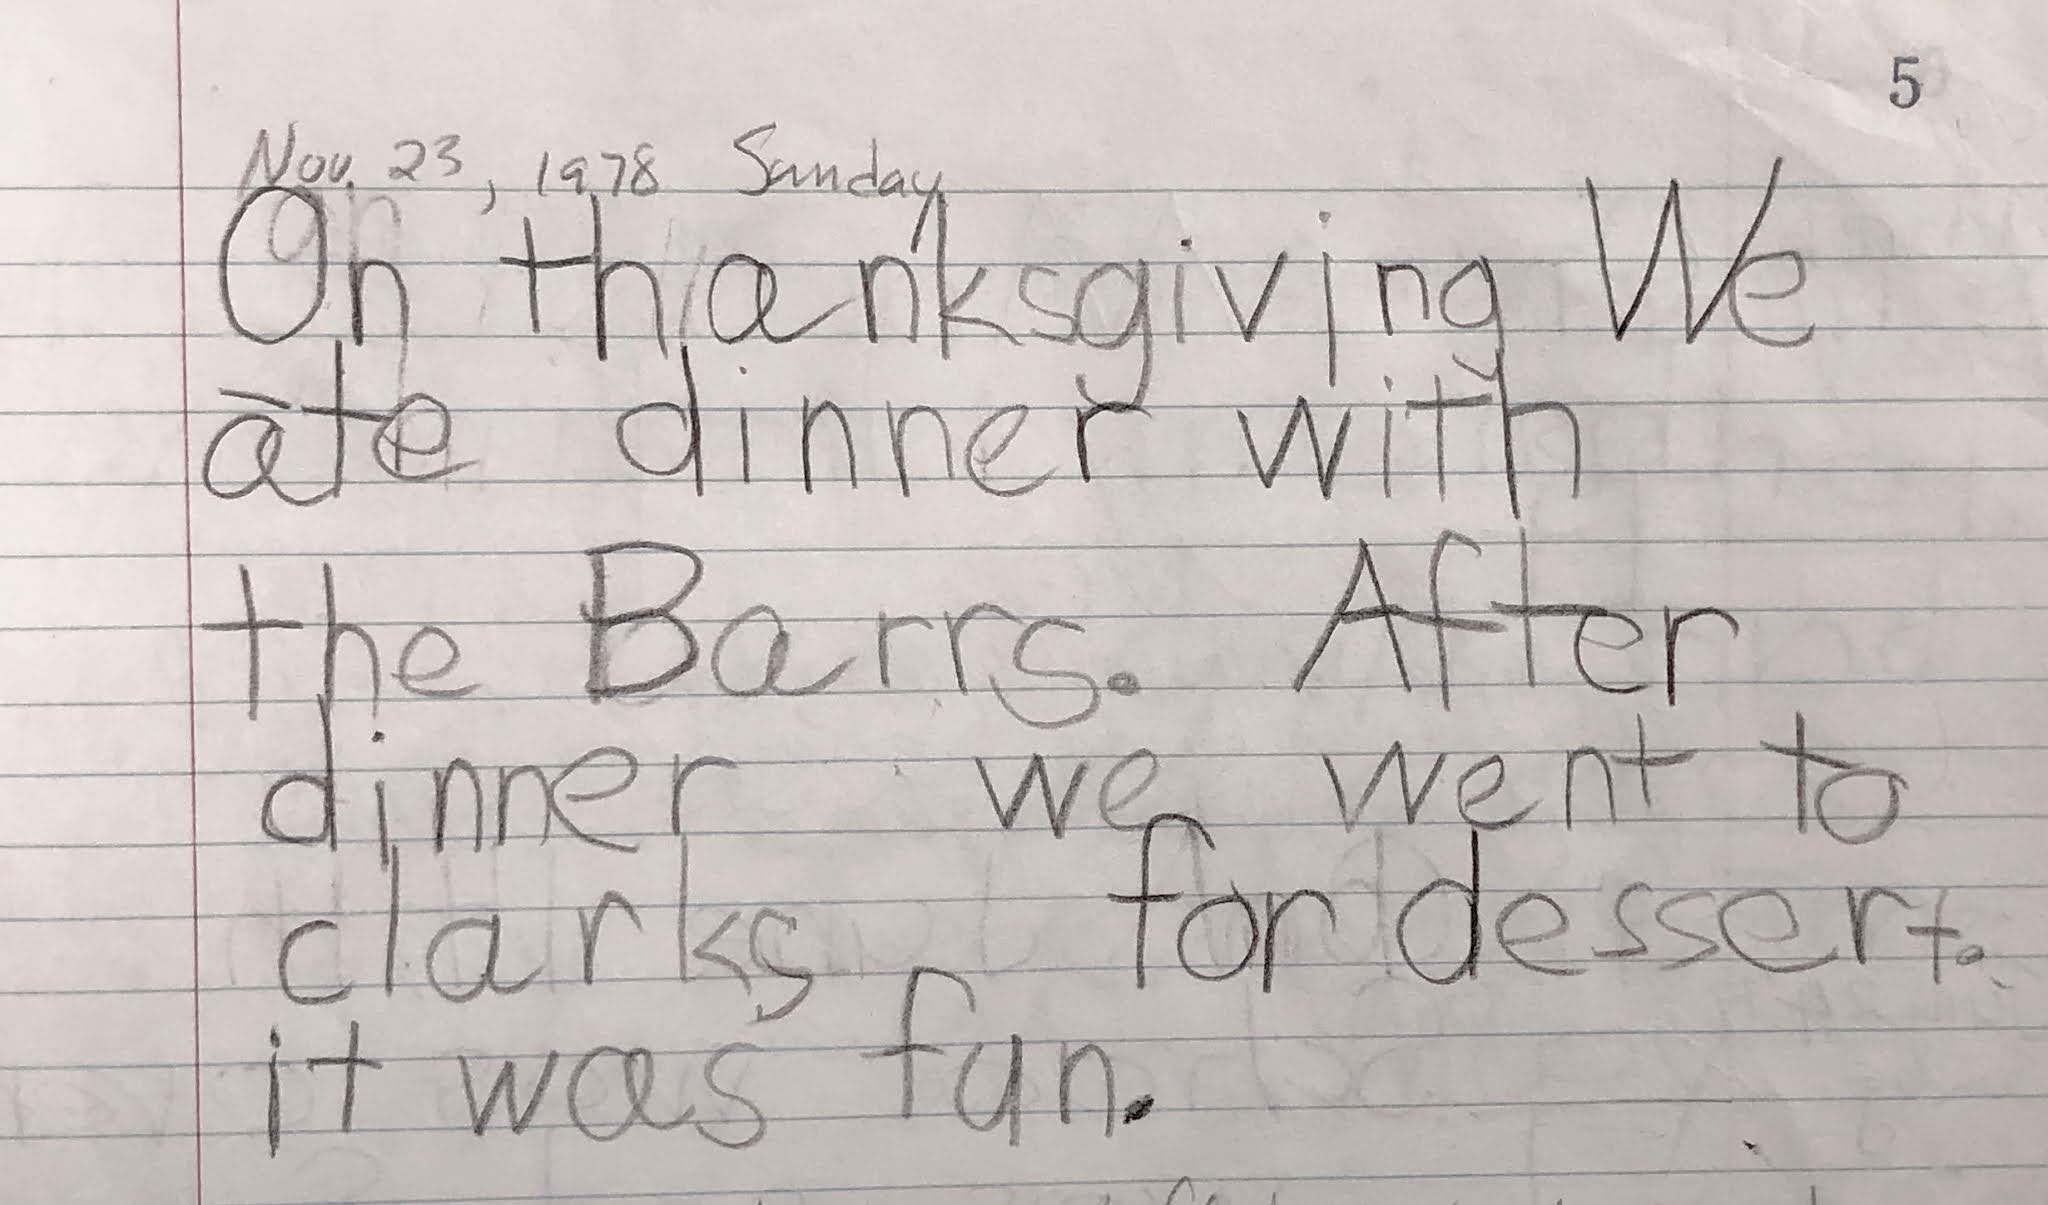 5
Nov. 23, 1978 Sunday
On thanksgiving We
āte dinner with
the Barrs. After
dinner we went to
clarks for dessert.
it was fun.